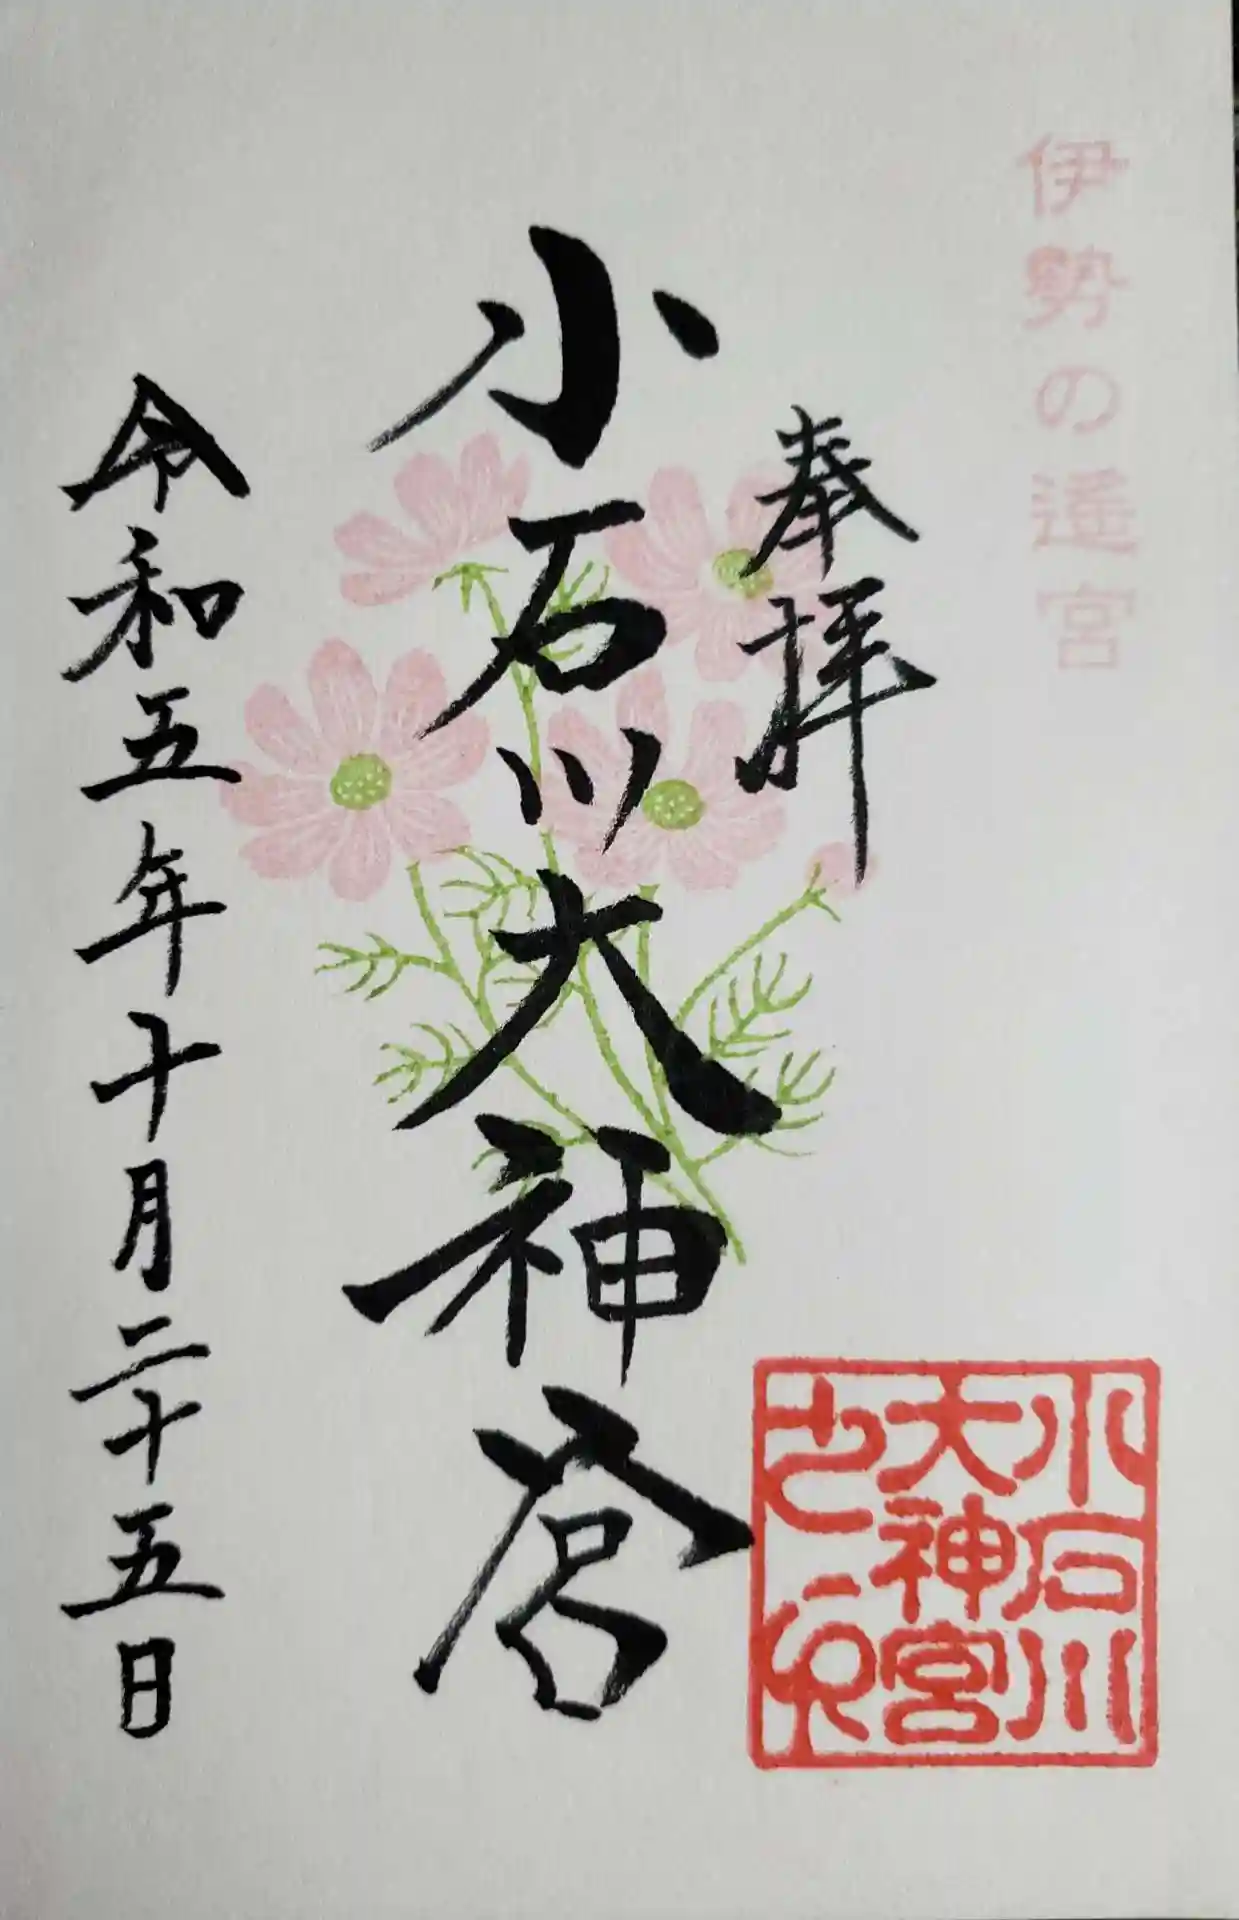 伊勢の遥宮
奉拝
小石川大神宮
令和五年十月二十五日
小石川
大神宮
之印